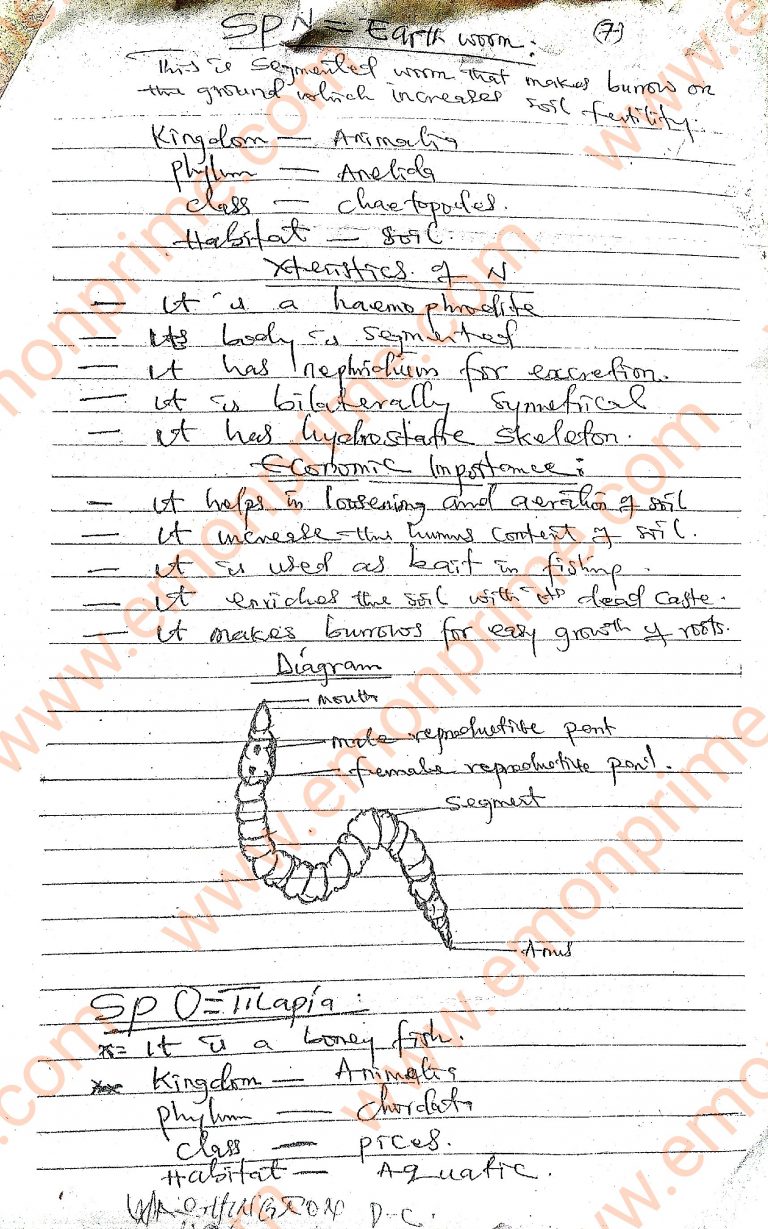 SP N = Earth worm: (7)
This is segmented worm that makes burrow on
the ground which increases soil fertility.
Kingdom — Animalia
phylum — Anelida
class — chaetopodes.
Habitat — soil.
Xteristics of N
— it is a haemophrodite
— its body is segmented
— it has nephridium for excretion.
— it is bilaterally symetrical
— it has hydrostatic skeleton.
Economic Importance:
— it helps in loosening and aeration of soil
— it increase the humus content of soil.
— it is used as bait in fishing.
— it enriches the soil with its dead caste.
— it makes burrows for easy growth of roots.
Diagram
mouth
male reproductive part
female reproductive part.
segment
Anus
SP O = Tilapia:
it is a boney fish.
Kingdom — Animalia
phylum — chordata
class — pices.
Habitat — Aquatic.
WASHINGTON D-C.
www.emonprime.com